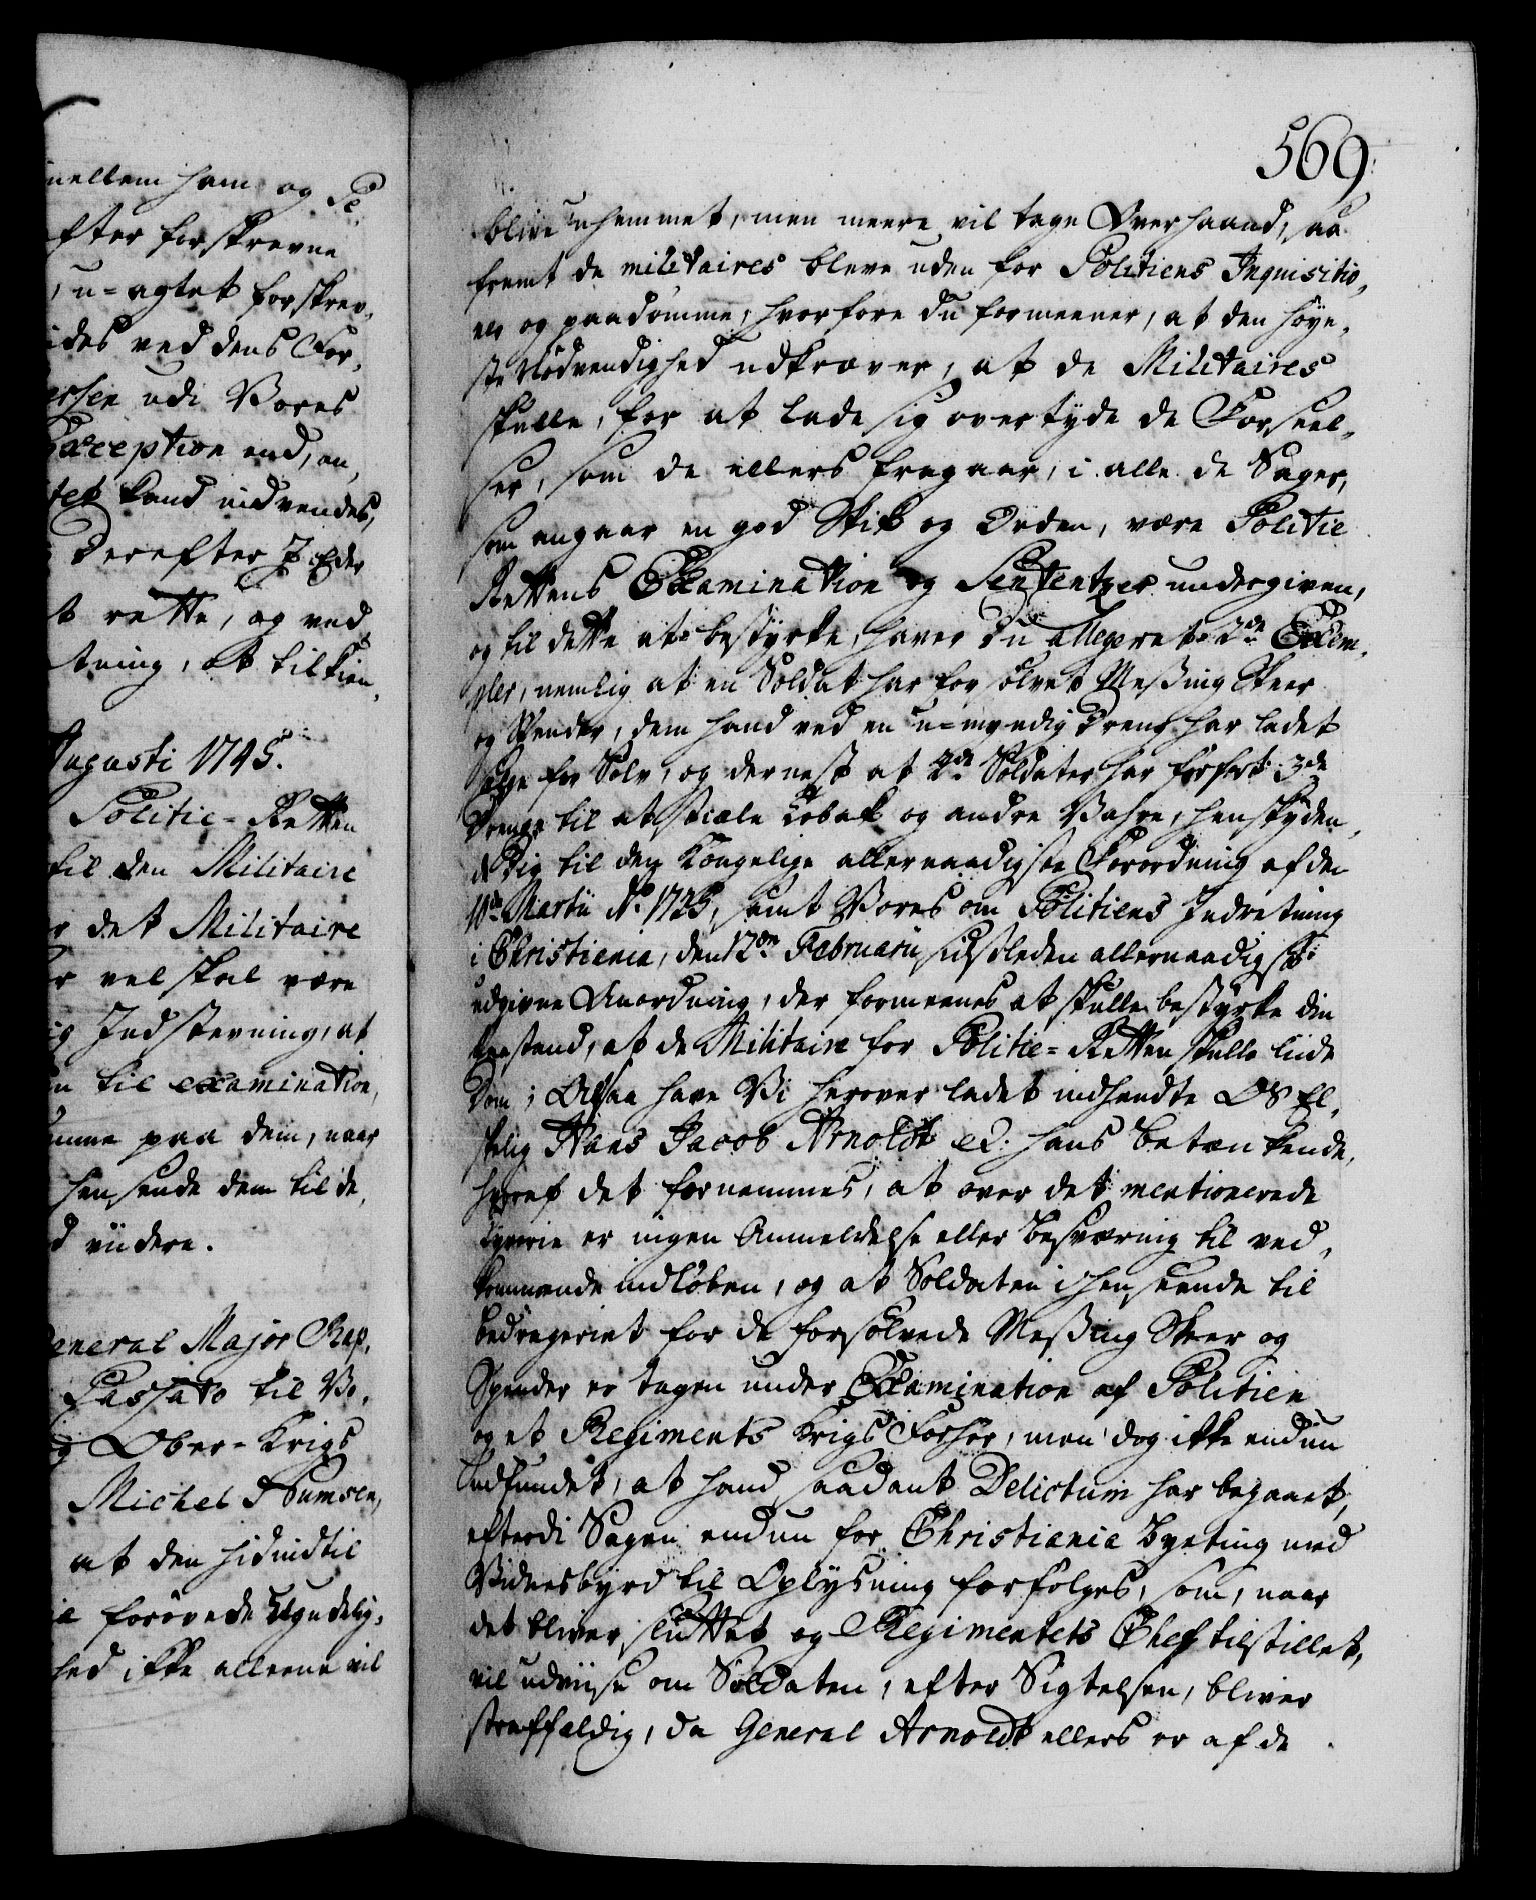 mellem ham og Pe
efter forskrevne
, u-agtet forskrev,
ides ved dens For,
ersen udi Vores
Exception end, an,
tet kand indvendes,
Derefter I Eder
t rette, og ved
tning, at tilkien,
Augusti 1745.
Politie-Retten
til den Militaire
r det Militaire
r vel skal være
ig Indstevning, at
n til examination,
omme paa dem, naar
hensende dem til de,
d viidere.
General Major Rap,
Passato til Vo,
g Ober-Krigs
Michel Thumsen,
at den hidindtil
forøvede Uhyndelig,
hed ikke alleene vil
569.
blive u hemmet, men meere vil tage Overhaand, saa
fremt de militaires bleve uden for Politiens Inquisitio,
en og paadømme, hvorfore du formeener, at den høye,
ste Nødvendighed udkræver, at de Militaires
skulle, for at lade sig overtyde de Forseel,
ser, som de ellers fragaar, i alle de Sager,
som angaar en god Skik og Orden, være Politie
Rettens Examination og Sententzer undergiven,
og til dette at bestyrke, haver du allegeret 2de Exem,
pler, nemlig at en Soldat har forsølvet Messing Skeer
og Spender, dem hand ved en u-myndig Dreng har ladet
sælge for Sølv, og dernest at 2de Soldater har forført 3de
Drenge til at stiæle Tobak og andre Vahre, henskyden,
de dig til den Kongelige allernaadigste Forordning af den
Martii Ao. 1725, samt Vores om Politiens Indretning
i Christiania, den 12de Februarii sidstleden allernaadigst
udgivne Anordning, der formeenes at skulle bestyrke din
Paastand, at de Militaire for Politie-Retten skulle liide
Dom; Altsaa have Vi herover ladet indhendte Os El,
skelig Hans Jacob Arnoldt etc. hans betænkende,
hvoraf det fornemmes, at over det mentionerede
Tyverie er ingen Anmeldelse eller Besværing til ved,
kommende indløben, og at Soldaten i henseende til
bedrageriet for de forsølvede Messing Skeer og
Spender er tagen under Examination af Politien
og et Regiments Krigs Forhør, men dog ikke endnu
udfundet, at hand saadant Delictum har begaaet,
efterdi Sagen endnu for Christiania Byeting med
Vidnesbyrd til Oplysning forfølges, som, naar
det bliver sluttet og Regimentets Chef tilstillet,
vil udviise om Soldaten, efter Sigtelsen, bliver
straffældig, da General Arnoldt ellers er af de